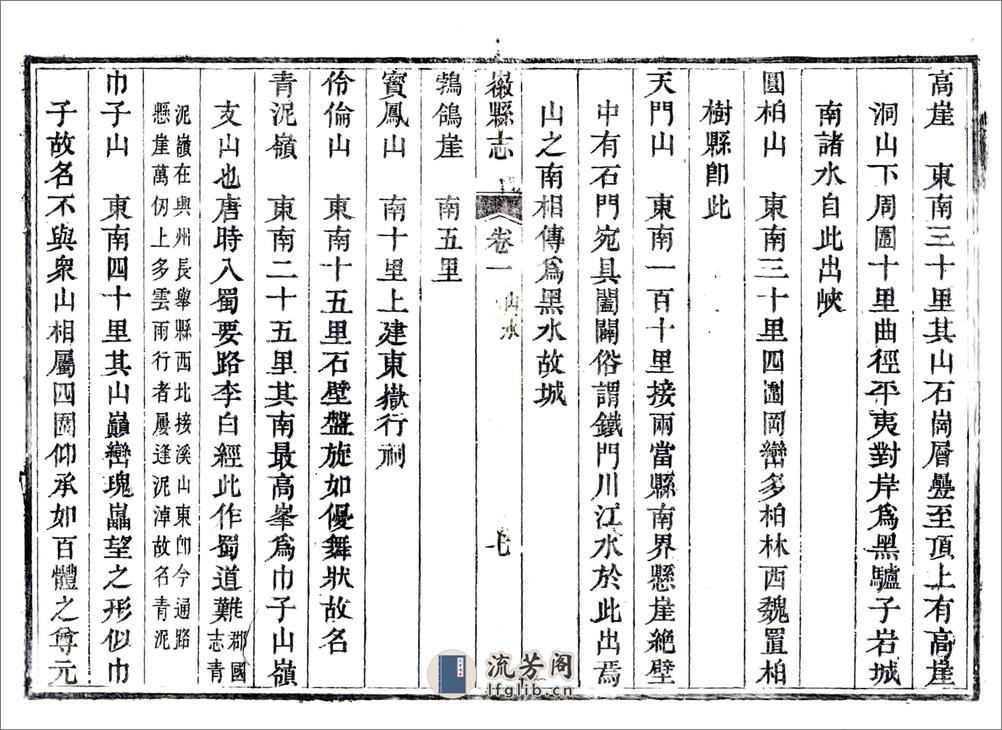 高崖　東南三十里其山石崗層疊至頂上有高崖
洞山下周圍十里曲徑平夷對岸爲黑驢子岩城
南諸水自此出峽
圓柏山　東南三十里四圍岡巒多柏林西魏置柏
樹縣卽此
天門山　東南一百十里接兩當縣南界懸崖絶壁
中有石門宛具闔闢俗謂鐵門川江水於此出焉
山之南相傳爲黑水故城
徽縣志　卷一　山水　七
鵓鴿崖　南五里
寳鳳山　南十里上建東嶽行祠
伶倫山　東南十五里石壁盤旋如優舞狀故名
青泥嶺　東南二十五里其南最高峯爲巾子山嶺
支山也唐時入蜀要路李白經此作蜀道難郡國
志青
泥嶺在興州長舉縣西北接溪山東卽今通路
懸崖萬仞上多雲雨行者屢逢泥淖故名青泥
巾子山　東南四十里其山巔巒瑰礨望之形似巾
子故名不與衆山相屬四圍仰承如百體之尊元
流芳阁
lfglib.cn